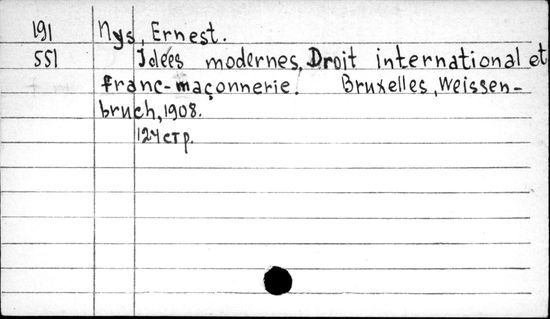 191 Nys, Ernest.
551 Idées modernes, Droit international et
franc-maçonnerie. Bruxelles, Weissen-
bruch, 1908.
124 стр.